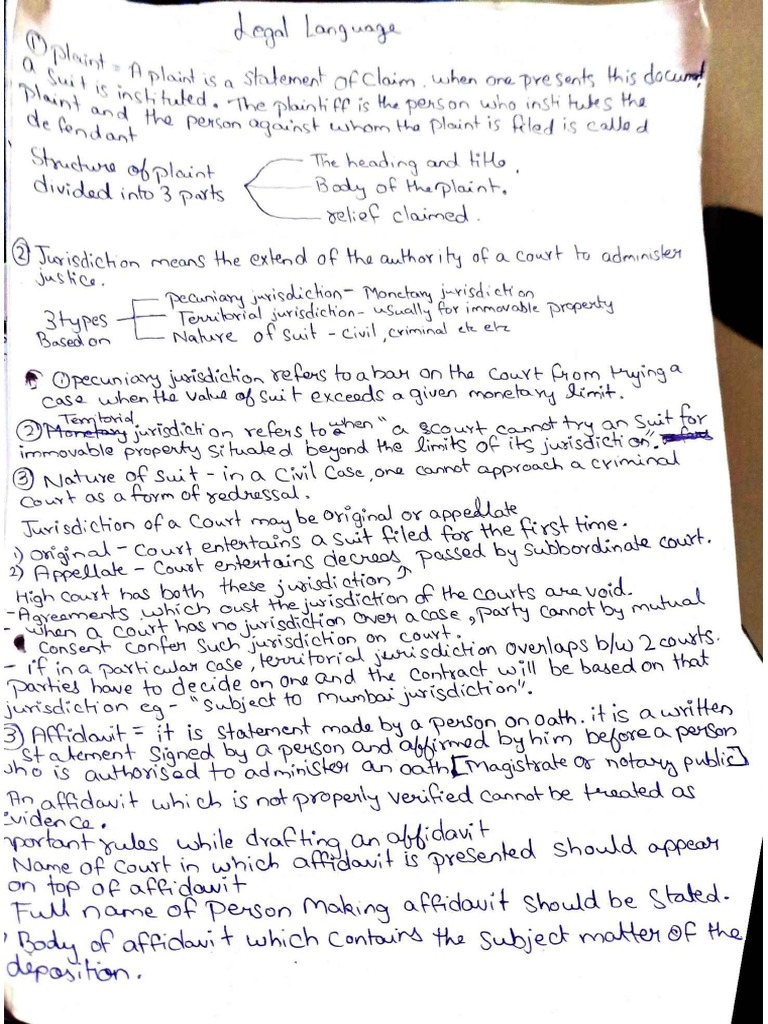 Legal Language
① plaint = A plaint is a statement of claim. when one presents this document
a suit is instituted. The plaintiff is the person who institutes the
plaint and the person against whom the plaint is filed is called
defendant
Structure of plaint
divided into 3 parts
The heading and title.
Body of the plaint.
relief claimed.
② Jurisdiction means the extend of the authority of a court to administer
justice.
3 types
Based on
pecuniary jurisdiction - Monetary jurisdiction
Territorial jurisdiction - usually for immovable property
Nature of suit - civil, criminal etc etc
① pecuniary jurisdiction refers to a bar on the court from trying a
case when the value of suit exceeds a given monetary limit.
② Territorial jurisdiction refers to when "a court cannot try an suit for
immovable property situated beyond the limits of its jurisdiction".
③ Nature of suit - in a civil case, one cannot approach a criminal
court as a form of redressal.
Jurisdiction of a court may be original or appellate
1) original - Court entertains a suit filed for the first time.
2) Appellate - Court entertains decrees passed by subbordinate court.
High court has both these jurisdiction
- Agreements which oust the jurisdiction of the courts are void.
- when a court has no jurisdiction over a case, party cannot by mutual
consent confer such jurisdiction on court.
- if in a particular case, territorial jurisdiction overlaps b/w 2 courts.
parties have to decide on one and the contract will be based on that
jurisdiction eg - "subject to mumbai jurisdiction".
3) Affidavit = it is statement made by a person on oath. it is a written
statement signed by a person and affirmed by him before a person
who is authorised to administer an oath [magistrate or notary public]
An affidavit which is not properly verified cannot be treated as
evidence.
portant rules while drafting an affidavit
Name of court in which affidavit is presented should appear
on top of affidavit
Full name of person Making affidavit should be stated.
Body of affidavit which contains the subject matter of the
deposition.